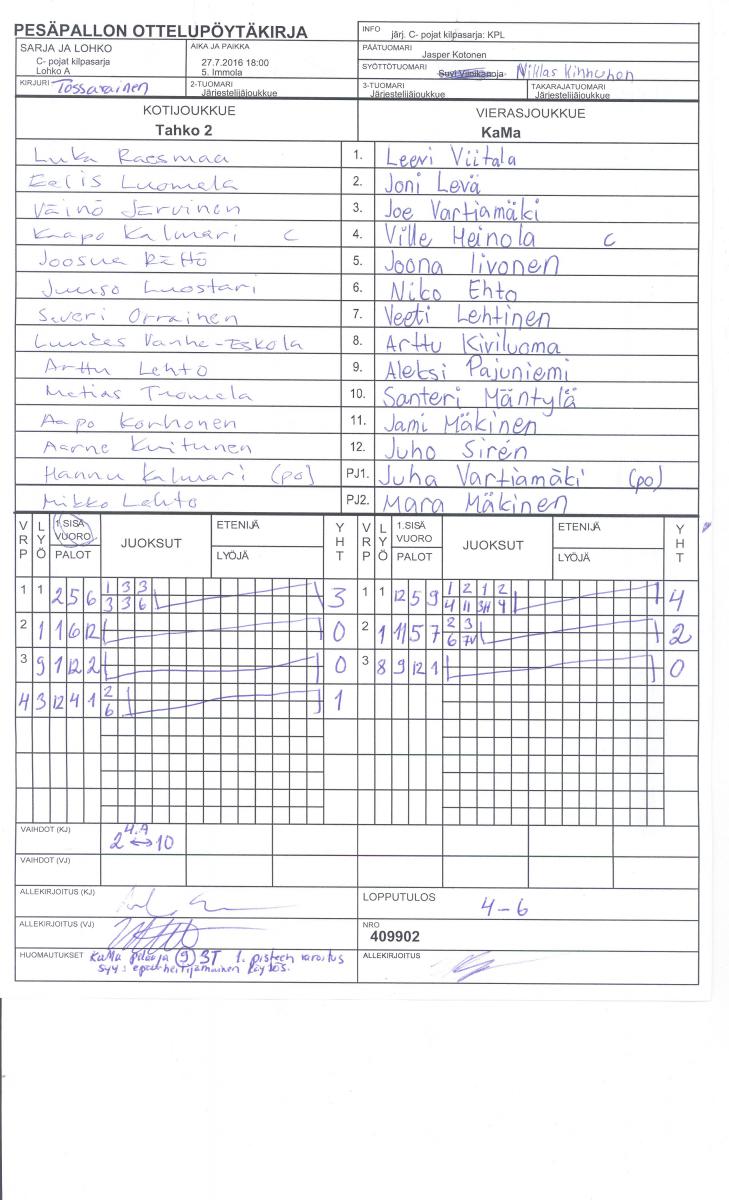 PESÄPALLON OTTELUPÖYTÄKIRJA
INFO järj. C- pojat kilpasarja: KPL
SARJA JA LOHKO
C- pojat kilpasarja
Lohko A
AIKA JA PAIKKA
27.7.2016 18:00
5. Immola
PÄÄTUOMARI
Jasper Kotonen
SYÖTTÖTUOMARI Niklas Kinnunen
KIRJURI Tossavainen
2-TUOMARI
Järjestelijäjoukkue
3-TUOMARI
Järjestelijäjoukkue
TAKARAJATUOMARI
Järjestelijäjoukkue
KOTIJOUKKUE VIERASJOUKKUE
Tahko 2 KaMa
Luka Raesmaa 1. Leevi Viitala
Eelis Luomela 2. Joni Levä
Väinö Järvinen 3. Joe Vartiamäki
Kaapo Kalmari C 4. Ville Heinola C
Joosua Rättö 5. Joona Iivonen
Juuso Luostari 6. Niko Ehto
Severi Orrainen 7. Veeti Lehtinen
Vanha-Eskola 8. Arttu Kiviluoma
Arttu Lehto 9. Aleksi Pajuniemi
Matias Tuomela 10. Santeri Mäntylä
Aapo Korhonen 11. Jami Mäkinen
Aarne Kuitunen 12. Juho Sirén
Hannu Kalmari (po) PJ1. Juha Vartiamäki (po)
Mikko Lehto PJ2. Mara Mäkinen
VRP LYÖ 1.SISÄ VUORO PALOT JUOKSUT ETENIJÄ LYÖJÄ YHT VRP LYÖ 1.SISÄ VUORO PALOT JUOKSUT ETENIJÄ LYÖJÄ YHT
1 1 2 5 6 1 3 3 3 1 1 12 5 9 1 2 1 2 4
3 3 6 4 11 3H 4
2 1 1 6 12 0 2 1 11 5 7 2 3 2
6 7V
3 9 1 12 2 0 3 8 9 12 1 0
4 3 12 4 1 2 1
6
VAIHDOT (KJ) 4.A
2 ↔ 10
VAIHDOT (VJ)
ALLEKIRJOITUS (KJ)
LOPPUTULOS 4-6
ALLEKIRJOITUS (VJ)
NRO
409902
HUOMAUTUKSET KaMa pelaaja 9 3T 1. pisteen varoitus
syy: epäurheilijamainen käytös.
ALLEKIRJOITUS